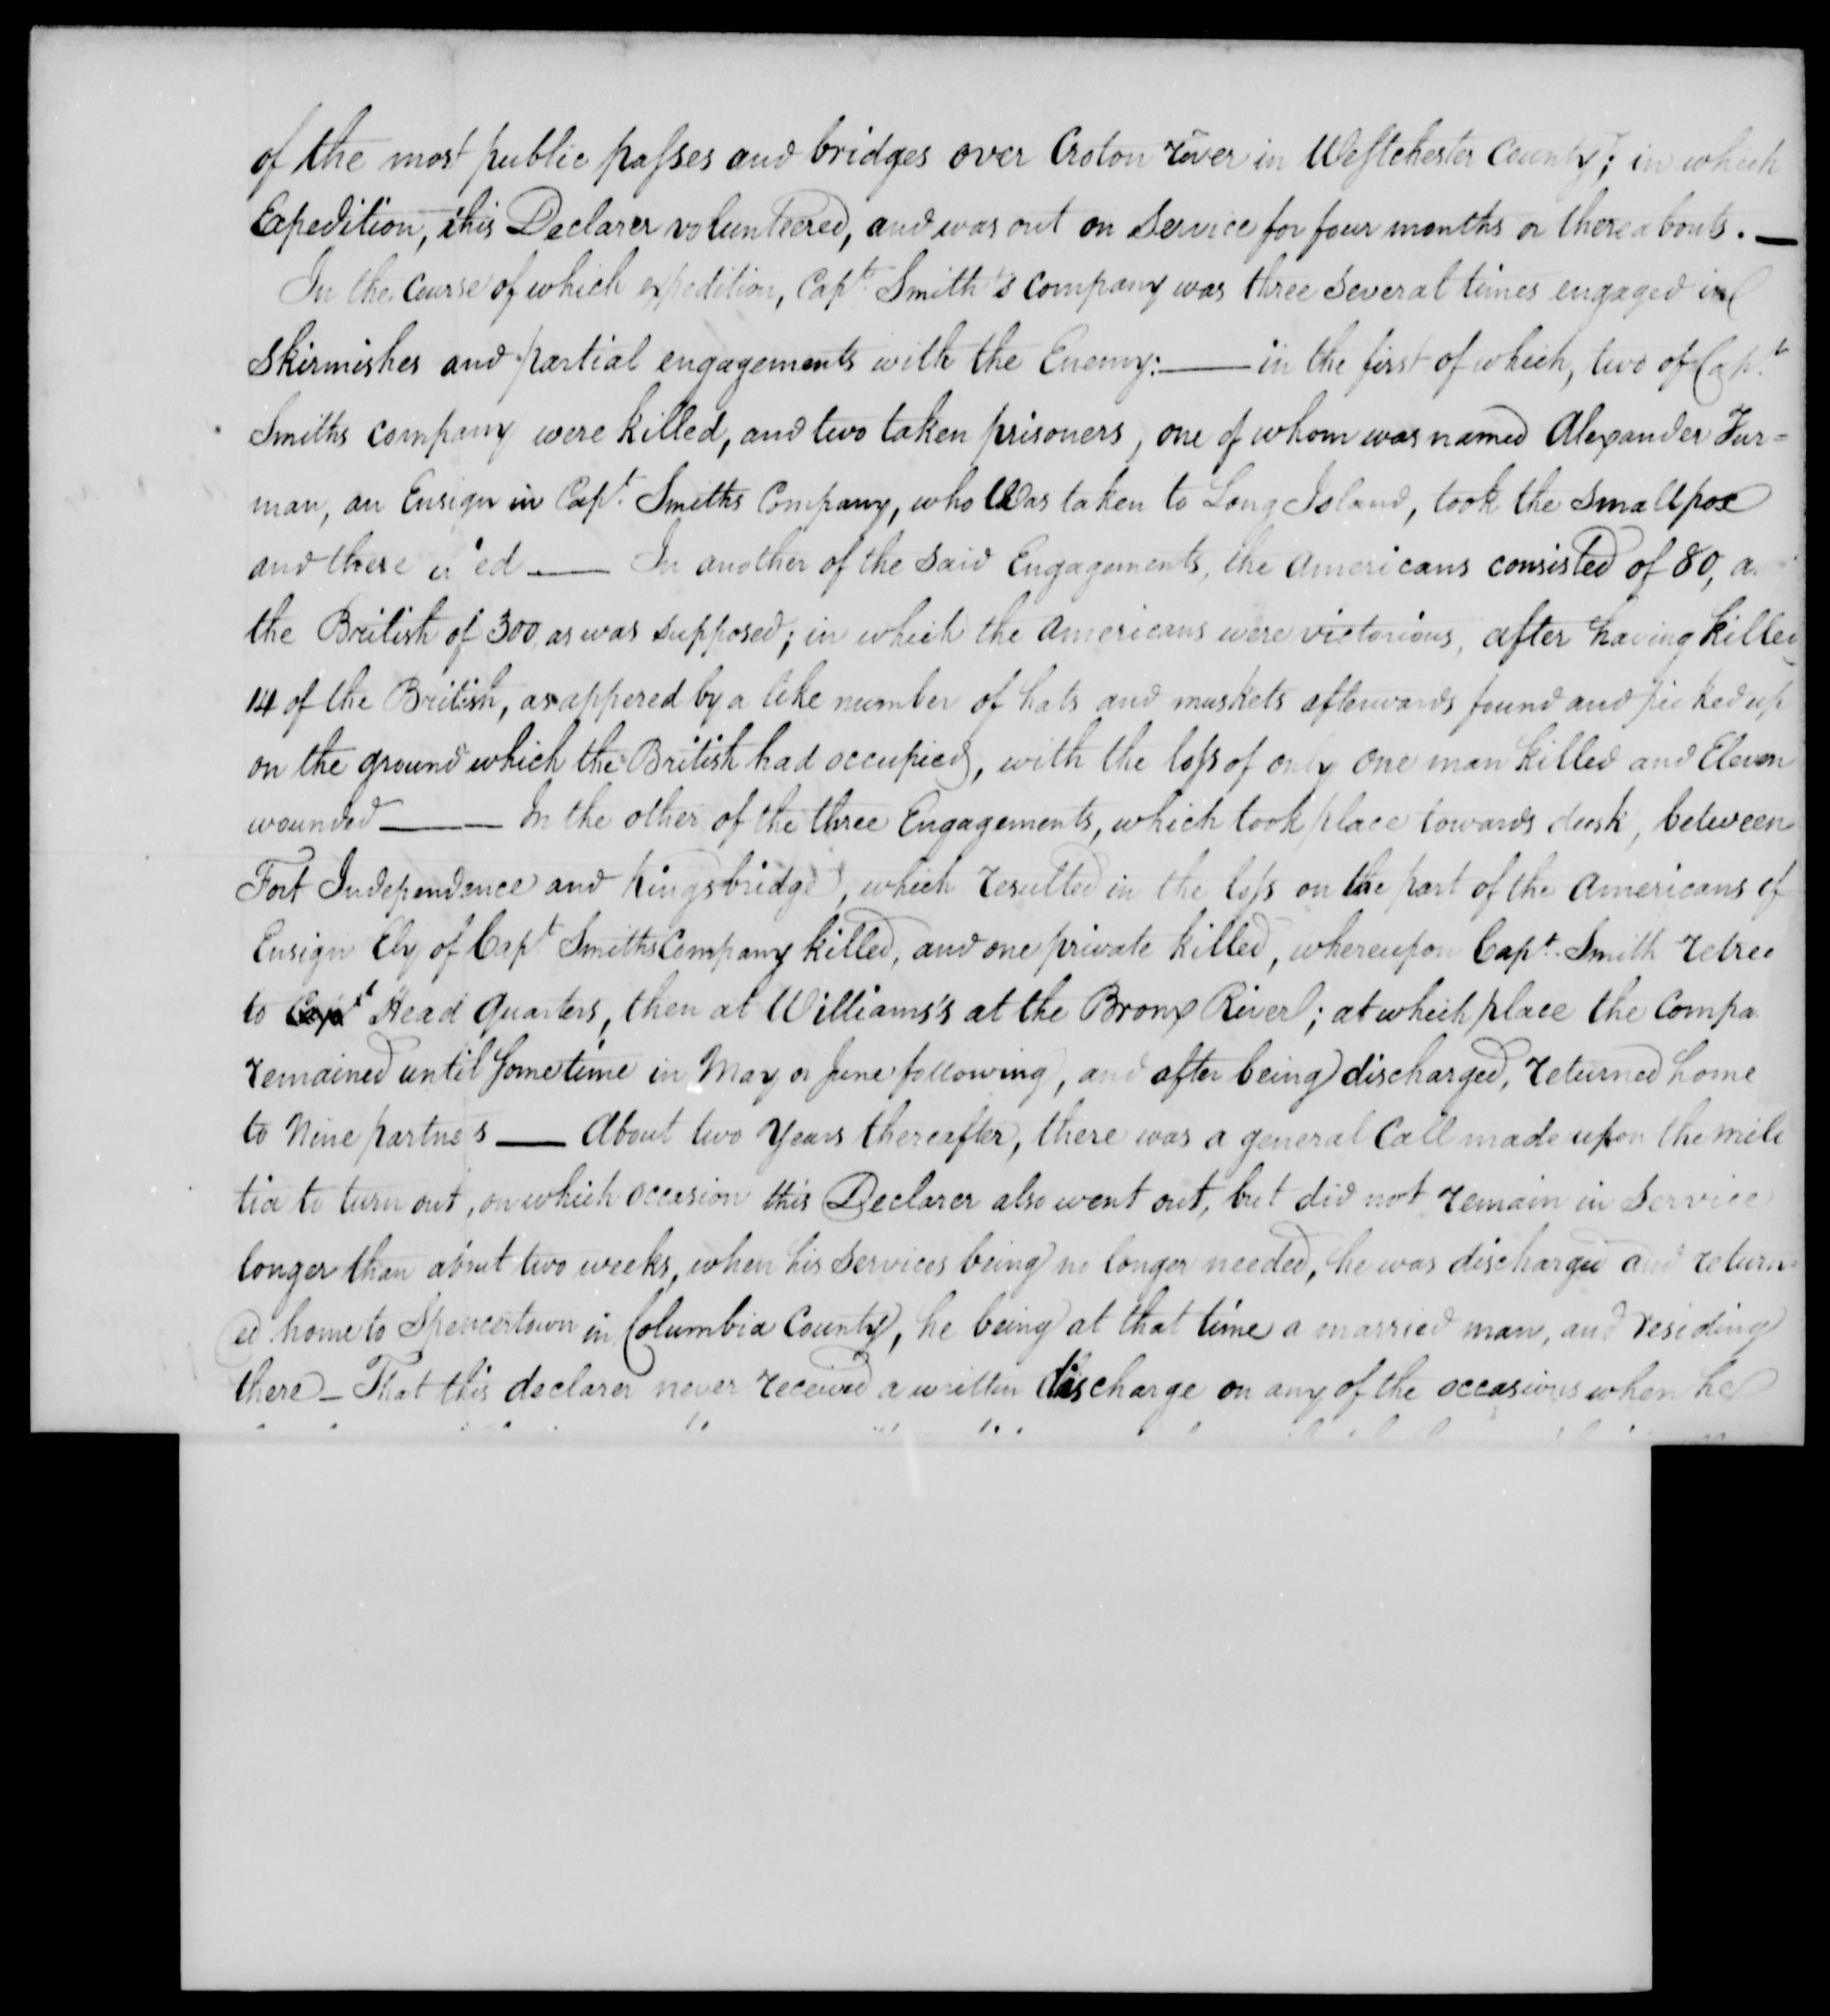 of the most public passes and bridges over Croton river in Westchester County; in which
Expedition, this Declarer volunteered, and was out on Service for four months or thereabouts. —
In the Course of which expedition, Capt. Smith's Company was three several times engaged in
Skirmishes and partial engagements with the Enemy: — in the first of which, two of Capt.
Smiths company were killed, and two taken prisoners, one of whom was named Alexander Fur=
man, an Ensign in Capt. Smiths Company, who Was taken to Long Island, took the Small pox
and there — In another of the said Engagements, the Americans consisted of 80,
the British of 300, as was supposed; in which the Americans were victorious, after having killed
14 of the British, as appered by a like number of hats and muskets afterwards found and picked up
on the ground which the British had occupied, with the loss of only one man killed and Eleven
wounded — In the other of the three Engagements, which took place towards dusk, between
Fort Independence and Kingsbridge, which resulted in the loss on the part of the Americans of
Ensign Ely of Capt Smiths Company killed, and one private killed, whereupon Capt. Smith retree
to Head Quarters, then at Williams's at the Bronx River; at which place the Compa
remained until Sometime in May or June following, and after being discharged, returned home
to Nine partnes — About two Years thereafter, there was a general Call made upon the mili
tia to turn out, on which occasion this Declarer also went out, but did not remain in Service
longer than about two weeks, when his Services being no longer needed, he was discharged and return=
ed home to Spencertown in Columbia County, he being at that time a married man, and residing
there — That this declarer never received a written discharge on any of the occasions when he